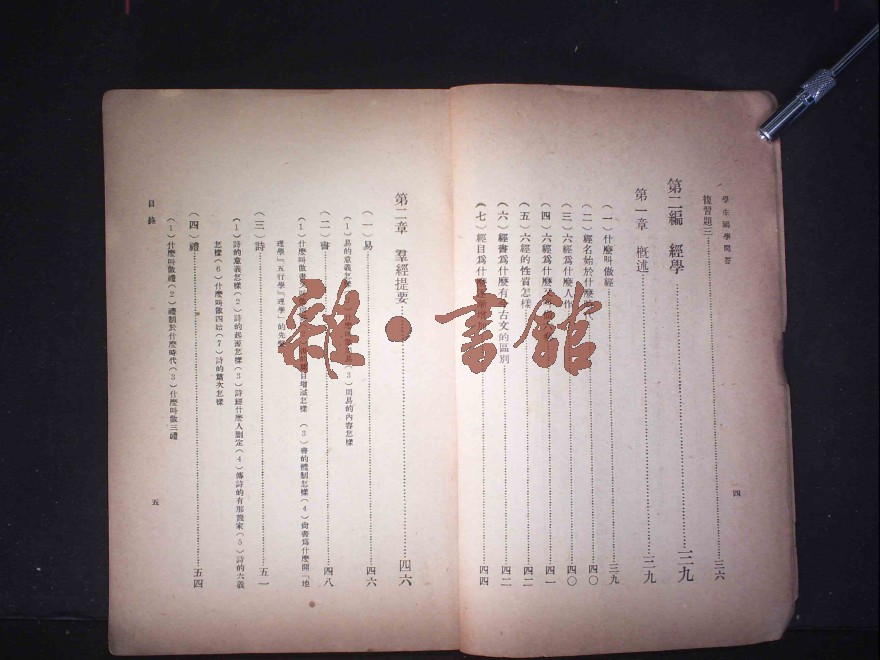 學生國學問答
四
複習題三 三六
第二編 經學 三九
第一章 概述 三九
（一）什麼叫做經 三九
（二）經名始於什麼 四〇
（三）六經為什麼人作 四〇
（四）六經為什麼 四一
（五）六經的性質怎樣 四二
（六）經書為什麼有今古文的區別 四二
（七）經目為什麼 四四
第二章 羣經提要 四六
（一）易 四六
（1）易的意義怎樣 （3）周易的內容怎樣
（二）書 四八
（1）什麼叫做書 目增減怎樣 （3）書的體制怎樣（4）尚書為什麼開「地
理學」「五行學」「理學」的先聲
（三）詩 五一
（1）詩的意義怎樣（2）詩的起源怎樣（3）詩經什麼人刪定（4）傳詩的有那幾家（5）詩的六義
怎樣（6）什麼叫做四始（7）詩的篇次怎樣
（四）禮 五四
（1）什麼叫做禮（2）禮制於什麼時代（3）什麼叫做三禮
目錄
五
雜·書館